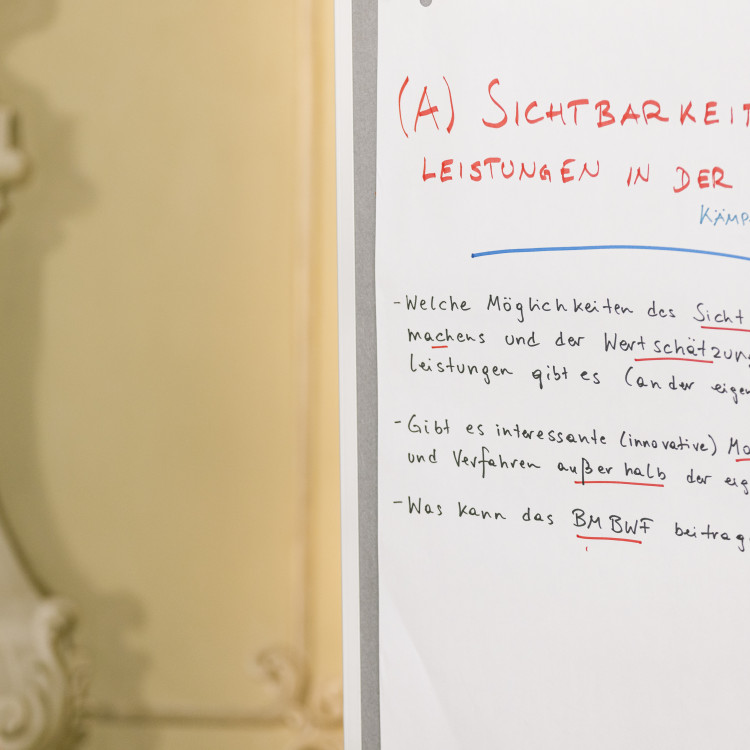 (A) SICHTBARKEIT
LEISTUNGEN IN DER
KÄMP
- Welche Möglichkeiten des Sicht
machens und der Wertschätzung
leistungen gibt es (an der eigen
- Gibt es interessante (innovative) Mo
und Verfahren außerhalb der eig
- Was kann das BMBWF beitrag